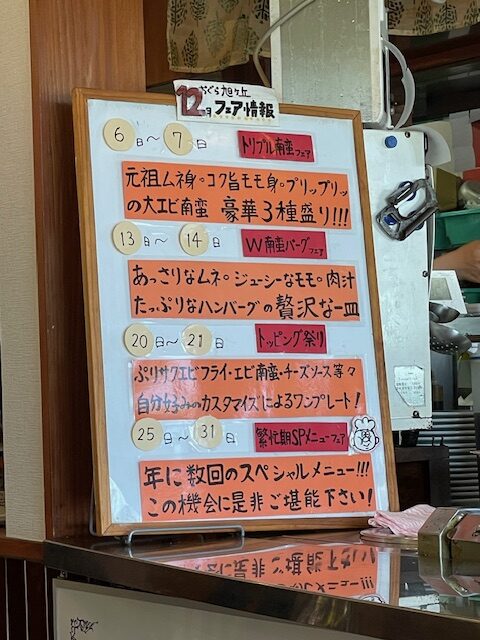 おぐら旭ヶ丘
12月フェア情報
6日〜7日 トリプル南蛮フェア
元祖ムネ身。コク旨モモ身。プリップリッ
の大エビ南蛮 豪華3種盛り!!!
13日〜14日 W南蛮バーグフェア
あっさりなムネ。ジューシーなモモ。肉汁
たっぷりなハンバーグの贅沢な一皿
20日〜21日 トッピング祭り
ぷりサクエビフライ・エビ南蛮・チーズソース等々
自分好みのカスタマイズによるワンプレート!
25日〜31日 繁忙期SPメニューフェア
年に数回のスペシャルメニュー!!!
この機会に是非ご堪能下さい!